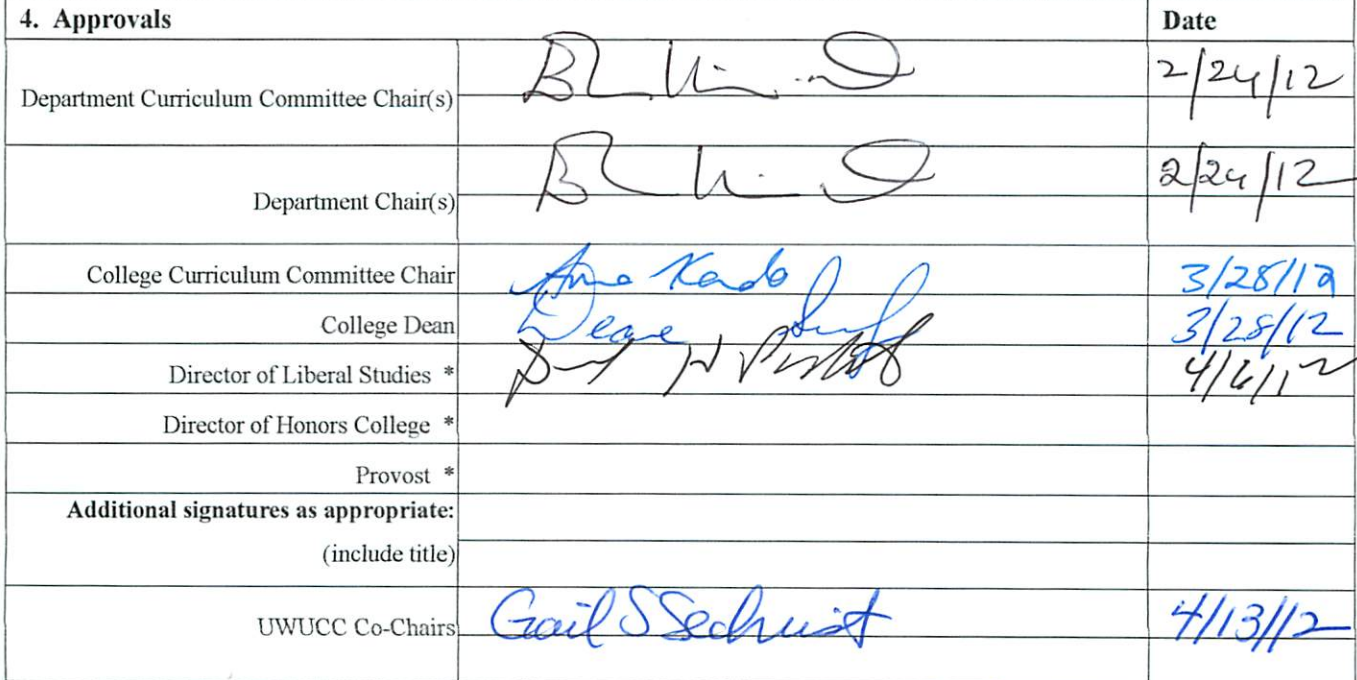 4. Approvals Date
Department Curriculum Committee Chair(s) 2/24/12
Department Chair(s) 2/24/12
College Curriculum Committee Chair 3/28/12
College Dean 3/28/12
Director of Liberal Studies * 4/6/12
Director of Honors College *
Provost *
Additional signatures as appropriate:
(include title)
UWUCC Co-Chairs Gail S Sechrist 4/13/12